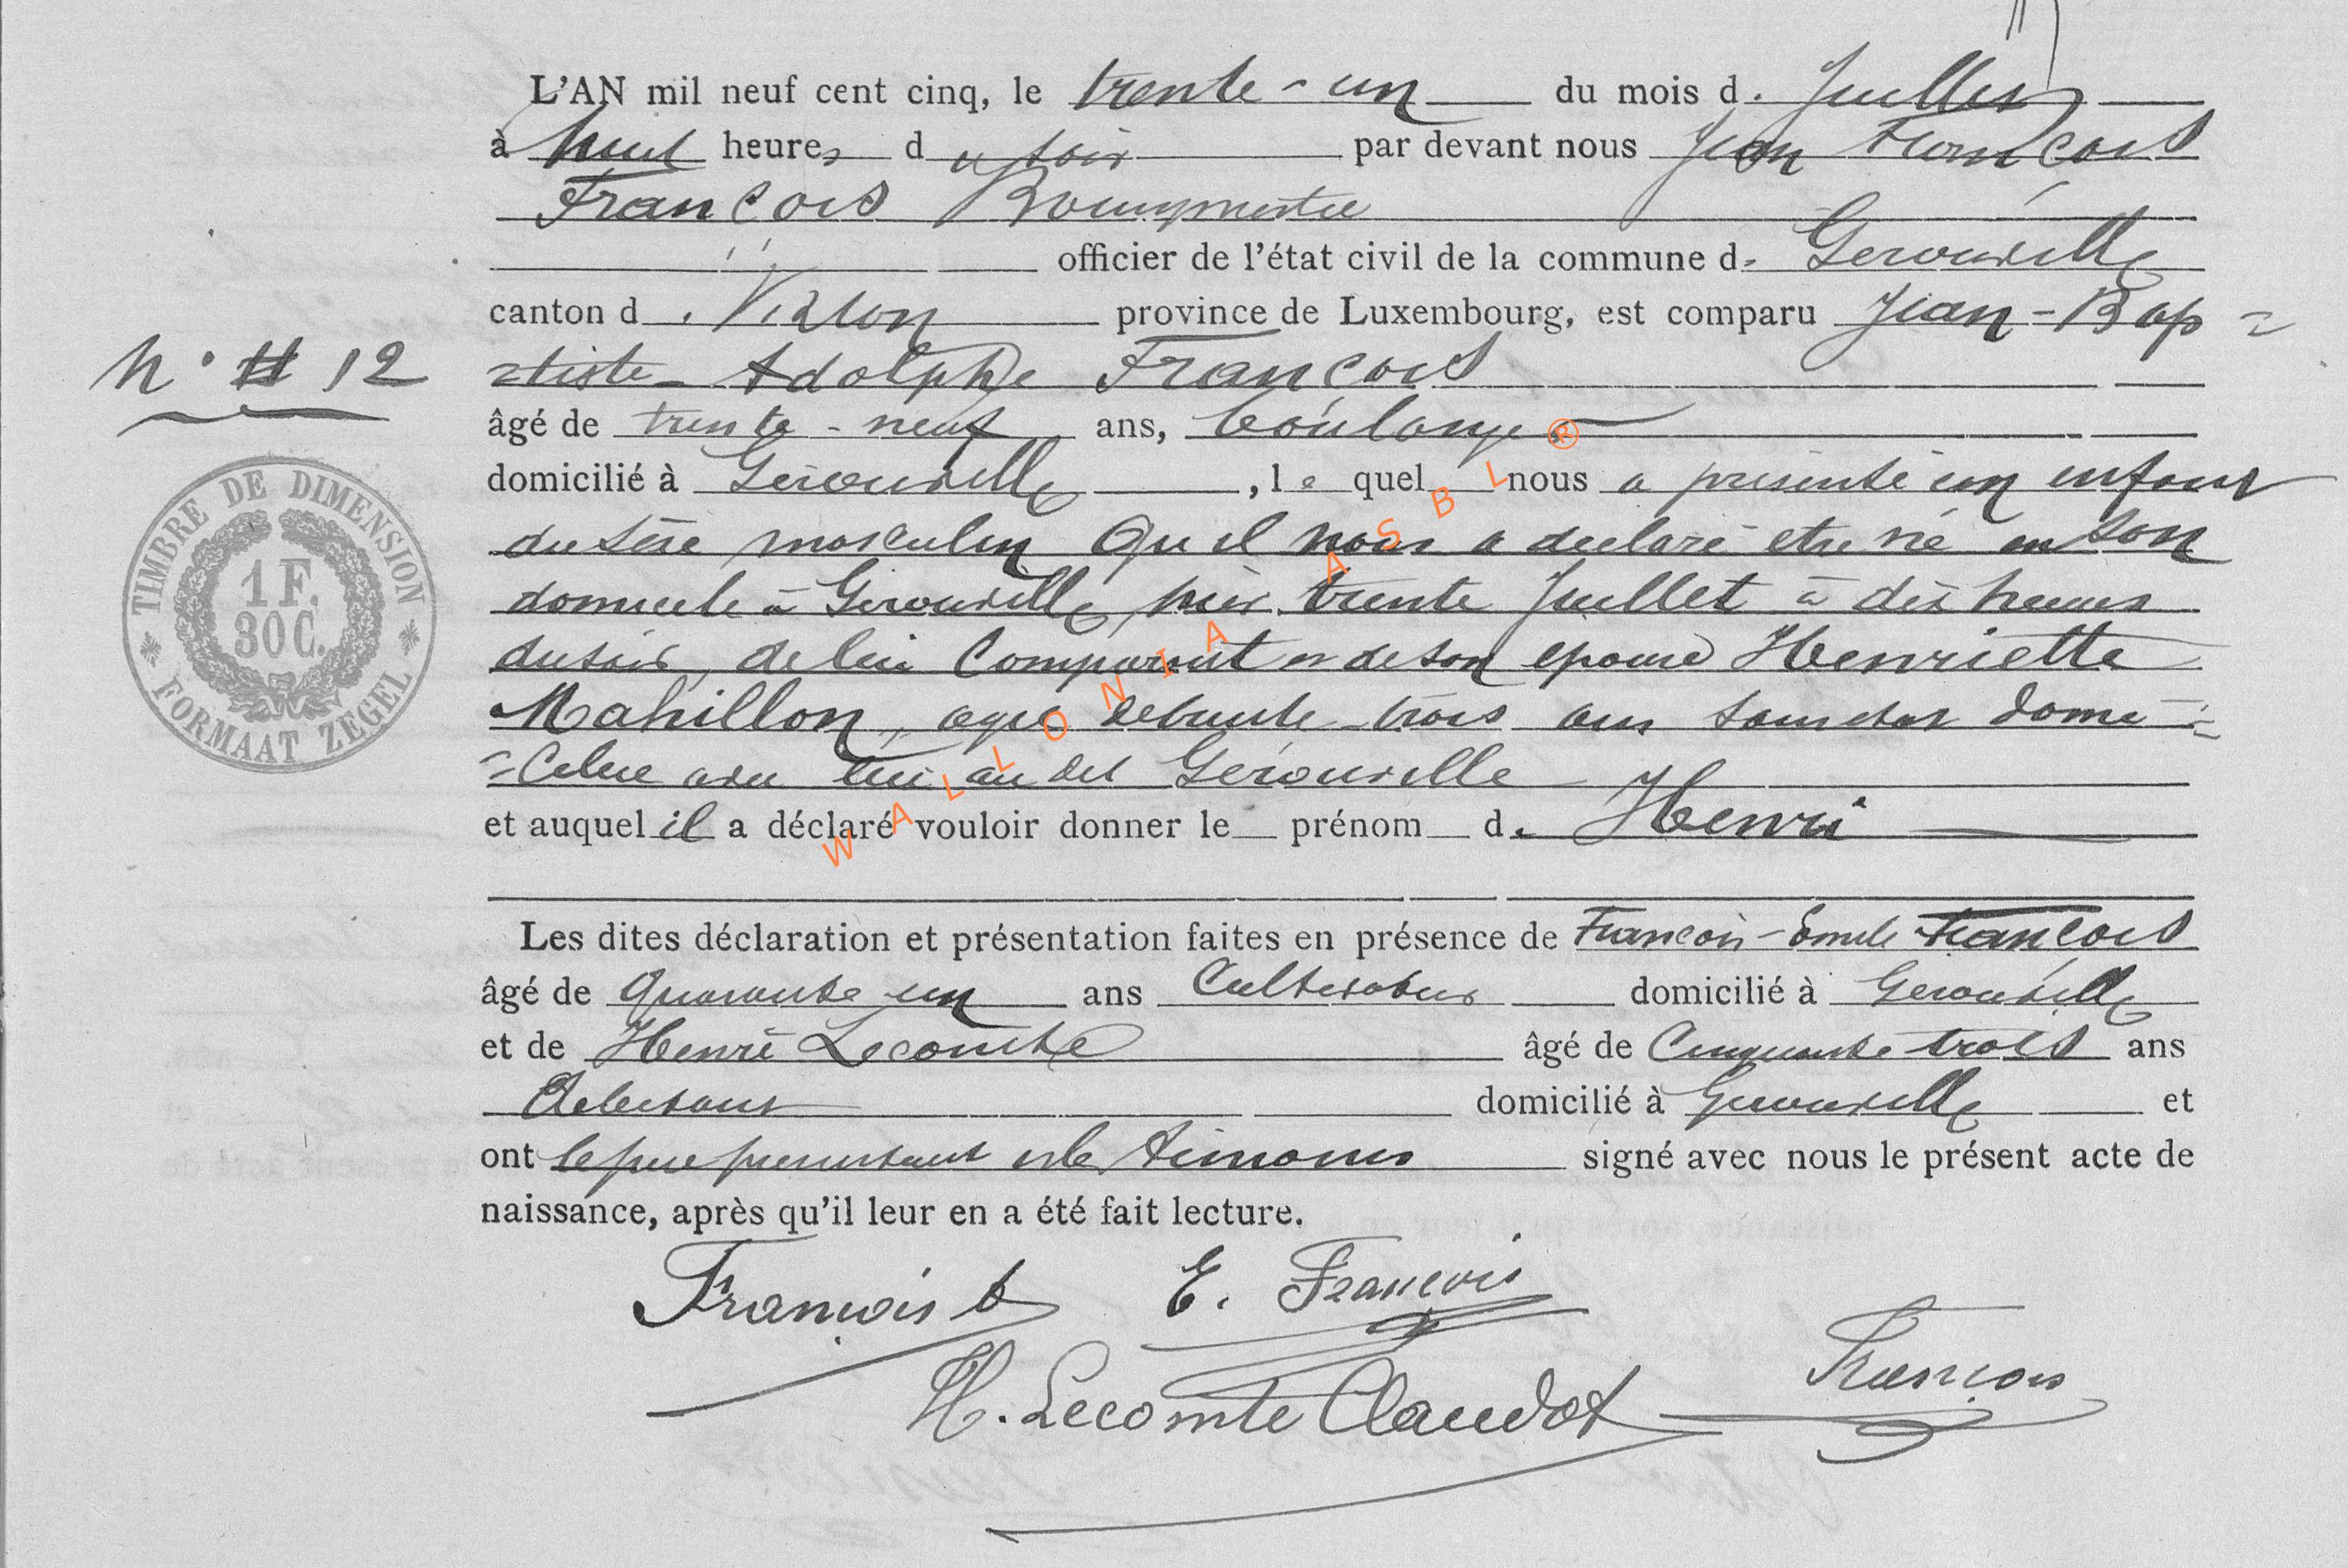 L'AN mil neuf cent cinq, le trente-un du mois de Juillet
à huit heures du soir par devant nous Jean François
François Bourgmestre
officier de l'état civil de la commune de Gerouville
canton de Virton province de Luxembourg, est comparu Jean-Bap=
=tiste Adolphe François
N° 12
âgé de trente-neuf ans, boulanger
domicilié à Gérouville, le quel nous a présenté un enfant
du sexe masculin qu'il nous a déclaré être né en son
domicile à Gerouville, hier trente Juillet à dix heures
du soir, de lui comparant et de son épouse Henriette
Mahillon, agée de trente-trois ans domi=
=ciliée avec lui au dit Gérouville
et auquel il a déclaré vouloir donner le prénom de Henri
Les dites déclaration et présentation faites en présence de François-Emile François
âgé de quarante un ans Cultivateur domicilié à Gerouville
et de Henri Lecomte âgé de Cinquante trois ans
domicilié à Gerouville et
ont le père et les témoins signé avec nous le présent acte de
naissance, après qu'il leur en a été fait lecture.
François E. François
H. Lecomte Claudot François
TIMBRE DE DIMENSION
1 F.
30 C.
FORMAAT ZEGEL
WALLONIA ASBL ®